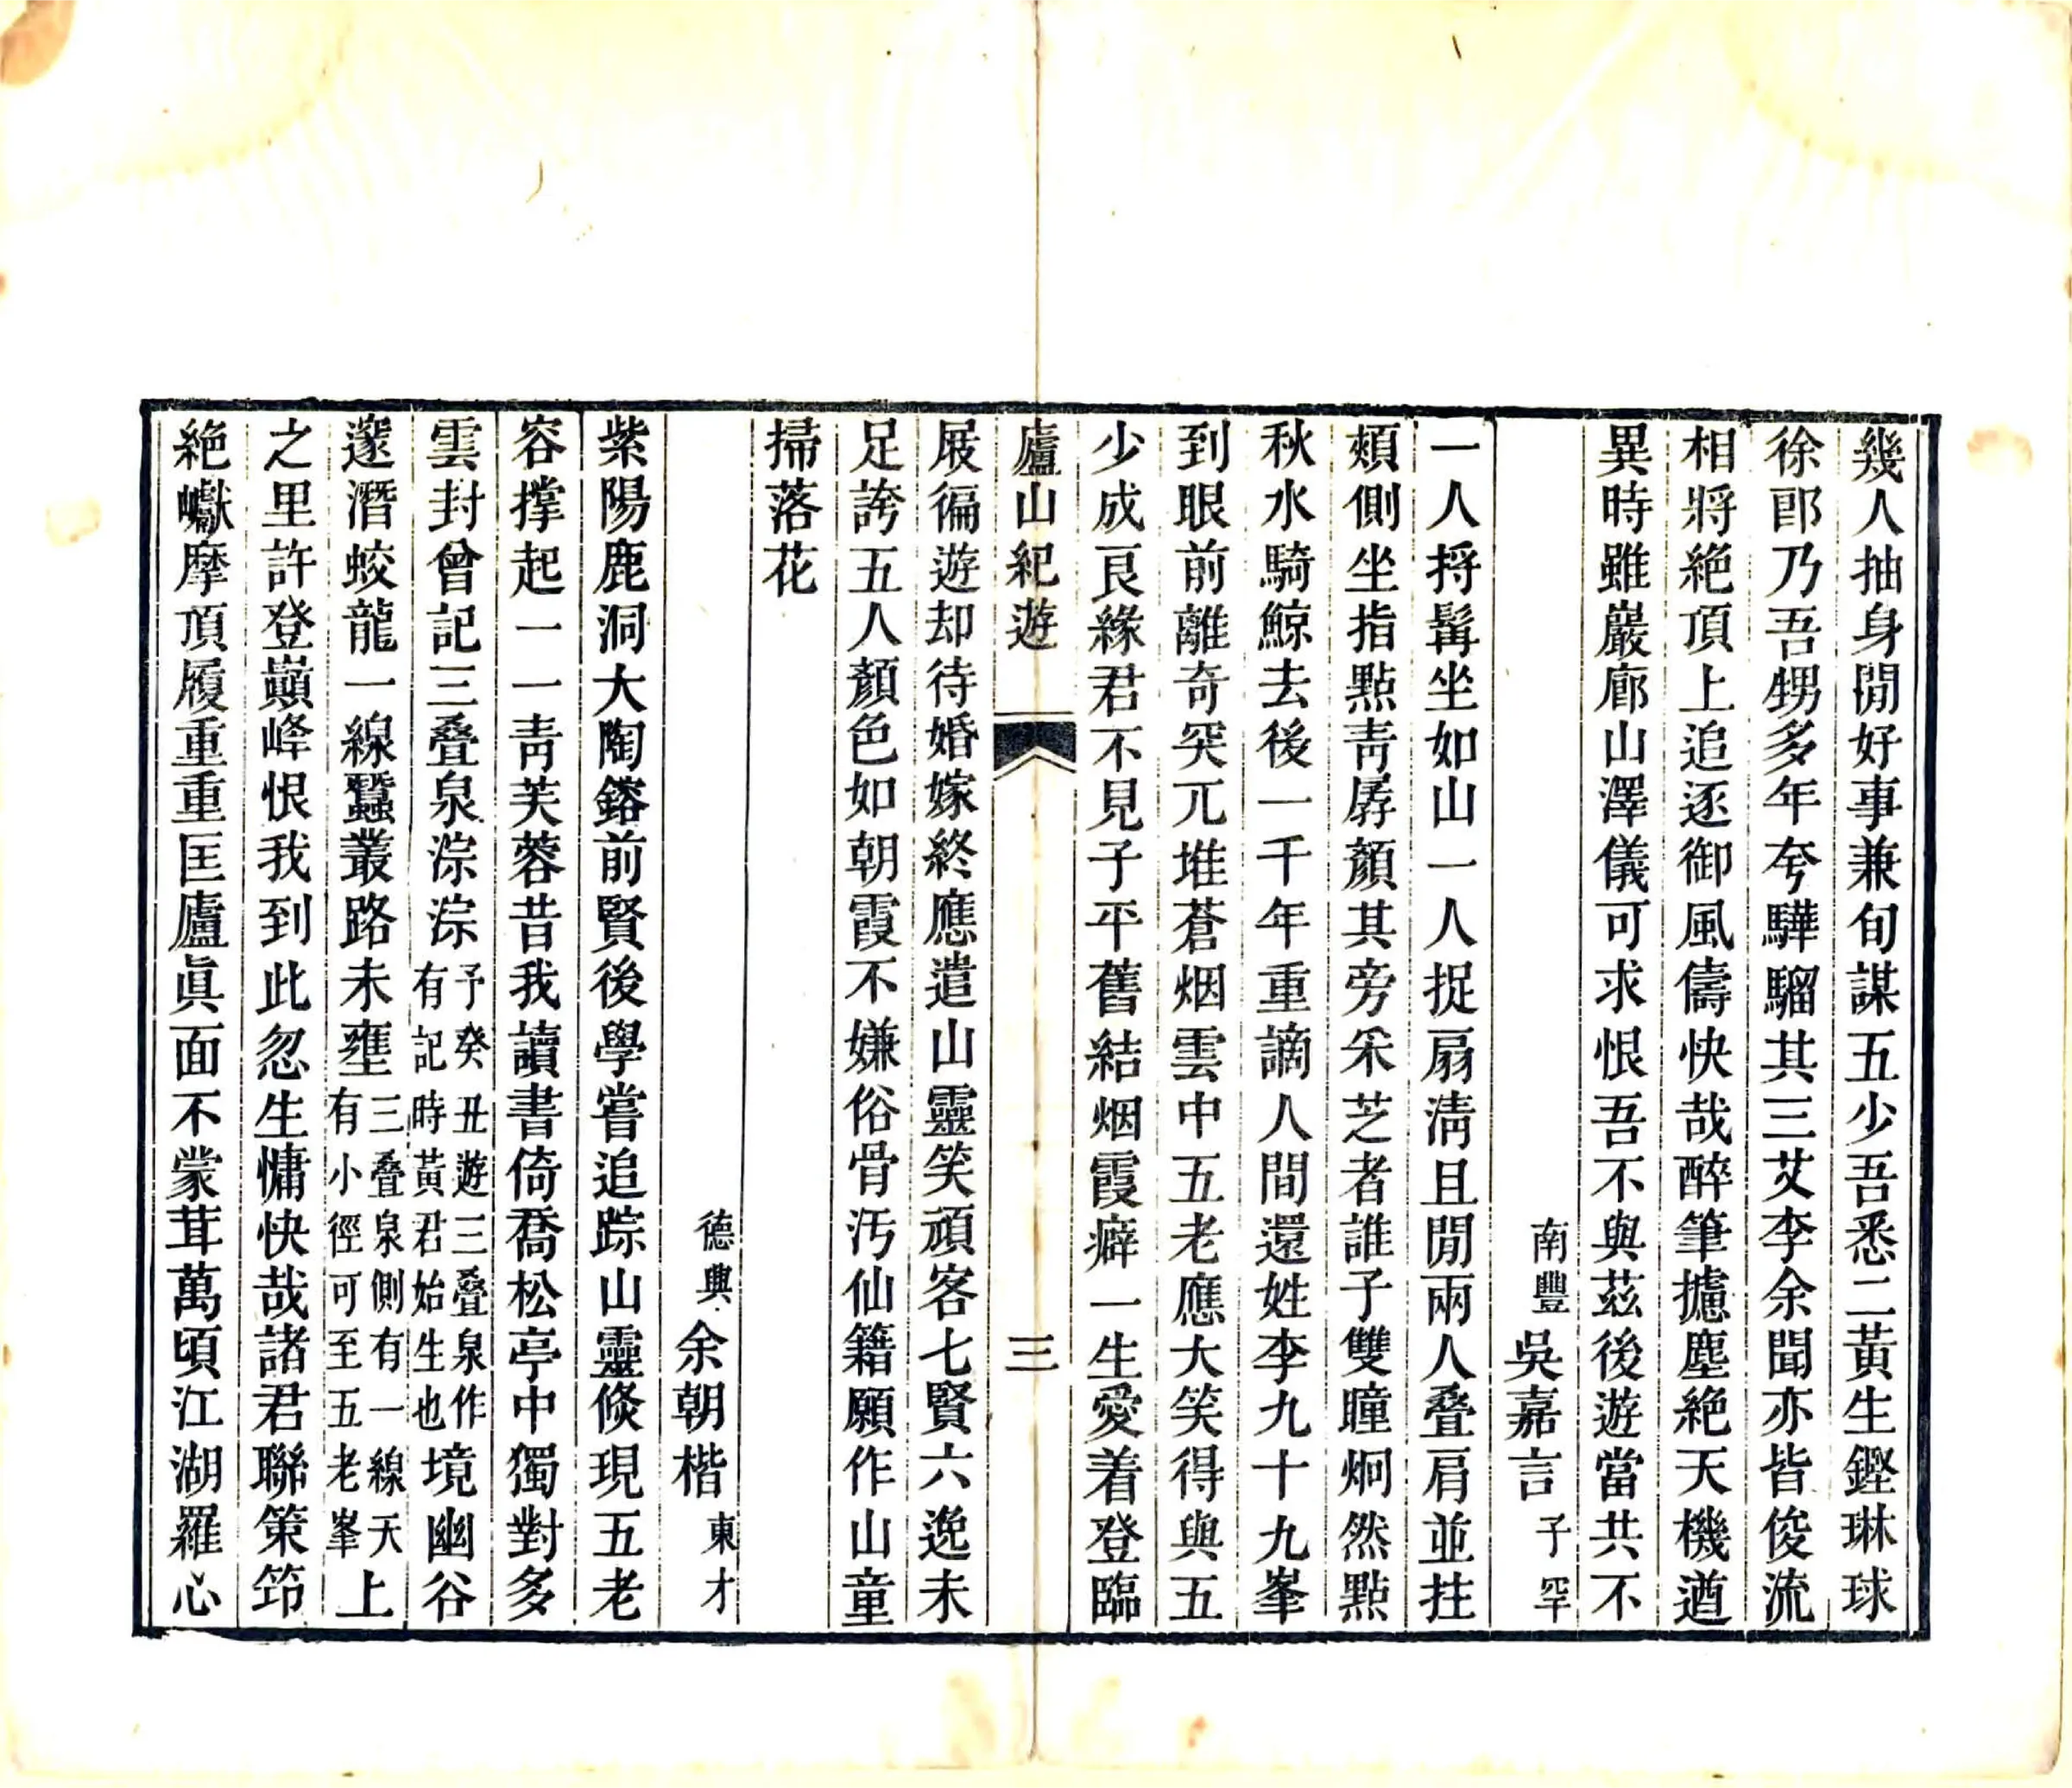 幾人抽身閒好事兼旬謀五少吾悉二黃生鏗琳球
徐郎乃吾甥多年夸驊騮其三艾李余聞亦皆俊流
相將絕頂上追逐御風儔快哉醉筆攄塵絕天機遒
異時雖巖廊山澤儀可求恨吾不與茲後遊當共不
南豐吳嘉言子罕
一人捋髯坐如山一人捉扇淸且閒兩人叠肩並拄
頰側坐指點靑孱顏其旁采芝者誰子雙瞳炯然點
秋水騎鯨去後一千年重謫人間還姓李九十九峯
到眼前離奇突兀堆蒼烟雲中五老應大笑得與五
少成良緣君不見子平舊結烟霞癖一生愛着登臨
廬山紀遊 三
屐徧遊却待婚嫁終應遣山靈笑頑客七賢六逸未
足誇五人顏色如朝霞不嫌俗骨汚仙籍願作山童
掃落花
德興余朝楷東才
紫陽鹿洞大陶鎔前賢後學嘗追踪山靈倐現五老
容撑起一一靑芙蓉昔我讀書倚喬松亭中獨對多
雲封曾記三叠泉淙淙予癸丑遊三叠泉作有記時黃君始生也境幽谷
邃潛蛟龍一線蠶叢路未壅三叠泉側有一線天有小徑可至五老峯上
之里許登巔峰恨我到此忽生慵快哉諸君聯策笻
絕巘摩頂履重重匡廬眞面不蒙茸萬頃江湖羅心